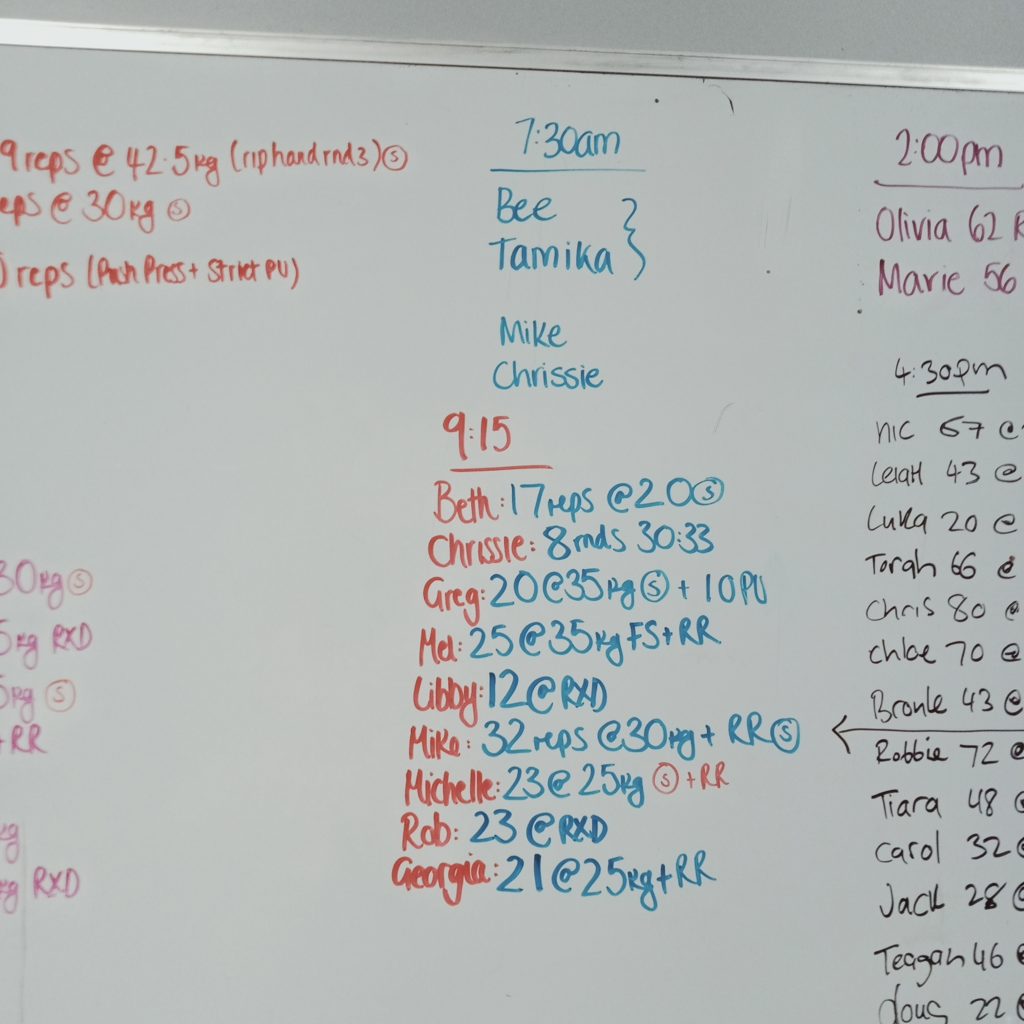 9 reps @ 42.5kg (riphand rnd3) Ⓢ
eps @ 30kg Ⓢ
) reps (Push Press + Strict PU)
30kg Ⓢ
5kg RXD
5kg Ⓢ
+ RR
kg
kg RXD
7:30am
Bee
Tamika }
Mike
Chrissie
9:15
Beth: 17reps @20 Ⓢ
Chrissie: 8rnds 30:33
Greg: 20@35kg Ⓢ + 10PU
Mel: 25@35kg FS+RR
Libby: 12@RXD
Mike: 32reps @30kg + RR Ⓢ
Michelle: 23@25kg Ⓢ +RR
Rob: 23 @RXD
Georgia: 21@25kg+RR
2:00pm
Olivia 62 R
Marie 56
4:30pm
nic 67 @
Leiah 43 @
Luka 20 @
Torah 66 @
Chris 80 @
chloe 70 @
Bronte 43 @
Robbie 72 @
Tiara 48 @
carol 32 @
Jack 28 @
Teagan 46 @
doug 22 @